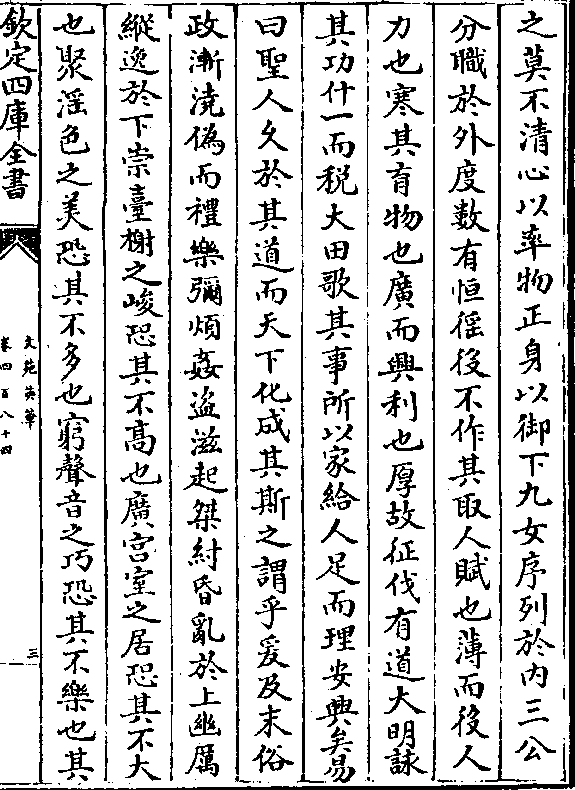 之莫不清心以率物正身以御下九女序列於内三公
分職於外度數有恒徭役不作其取人賦也薄而役人
力也寡其育物也廣而興利也厚故征伐有道大明詠
其功什一而税大田歌其事所以家給人足而理安興矣易
曰聖人久於其道而天下化成其斯之謂乎爰及末俗
政漸澆偽而禮樂彌煩姦盜滋起桀紂昏亂於上幽厲
縱逸於下崇臺榭之峻恐其不高也廣宫室之居恐其不大
也聚淫色之美恐其不多也窮聲音之巧恐其不樂也其
欽定四庫全書
文苑英華
卷四百八十四
三